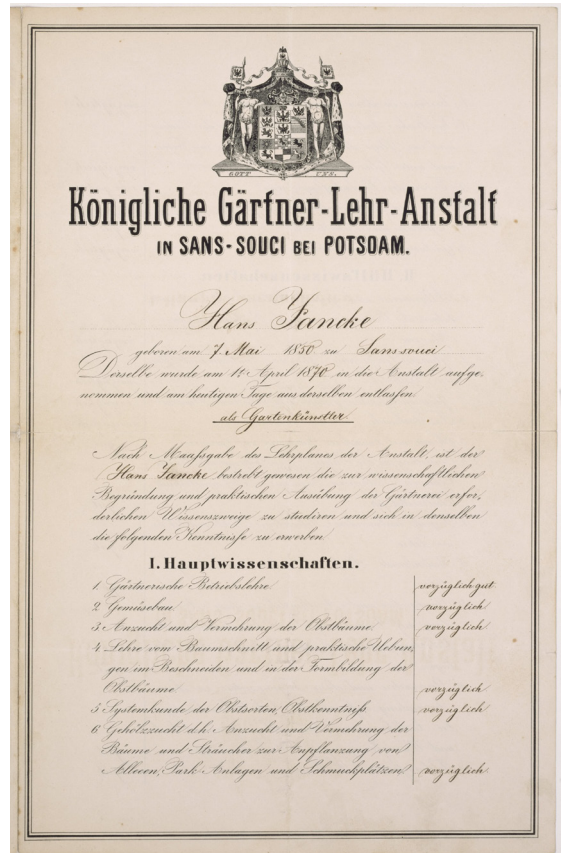 GOTT UNS.
Königliche Gärtner-Lehr-Anstalt
IN SANS-SOUCI BEI POTSDAM.
Hans Jancke
geboren am 7. Mai 1850 zu Sanssouci
Derselbe wurde am 1t. April 1870 in die Anstalt aufge-
nommen und am heutigen Tage aus derselben entlassen
als Gartenkünstler
Nach Maaßgabe des Lehrplanes der Anstalt, ist der
Hans Jancke, bestrebt gewesen die zur wissenschaftlichen
Begründung und praktischen Ausübung der Gärtnerei erfor-
derlichen Wissenszweige zu studiren und sich in denselben
die folgenden Kenntnisse zu erwerben
I. Hauptwissenschaften.
1. Gärtnerische Betriebslehre vorzüglich gut
2. Gemüsebau vorzüglich
3. Anzucht und Vermehrung der Obstbäume vorzüglich
4. Lehre vom Baumschnitt und praktische Uebun-
gen im Beschneiden und in der Formbildung der
Obstbäume vorzüglich
5. Systemkunde der Obstsorten, Obstkenntniß vorzüglich
6. Gehölzzucht d.h. Anzucht und Vermehrung der
Bäume und Sträucher zur Anpflanzung von
Alleeen, Park-Anlagen und Schmuckplätzen vorzüglich